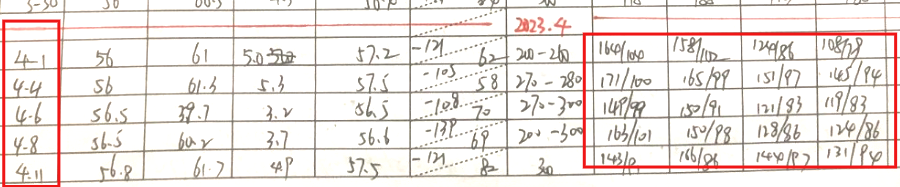 3-30 56
2023.4
4-1 56 61 5.0 57.2 -121 62 200-260 164/100 158/102 124/86 108/78
4-4 56 61.3 5.3 57.5 -105 58 270-280 171/100 165/99 151/97 145/94
4-6 56.5 59.7 3.2 56.5 -10.8 70 270-300 149/99 150/91 121/83 119/83
4-8 56.5 60.2 3.7 56.6 -139 69 200-300 163/101 150/98 128/86 124/86
4.11 56.8 61.7 4.9 57.5 -121 82 300 166/86 144/87 131/94